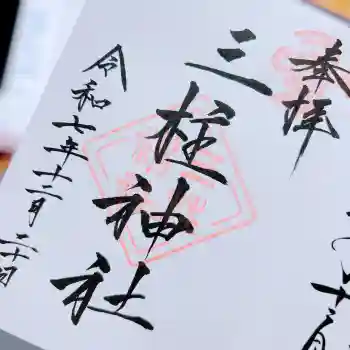 奉拝
三柱神社
令和七年十二月二十日